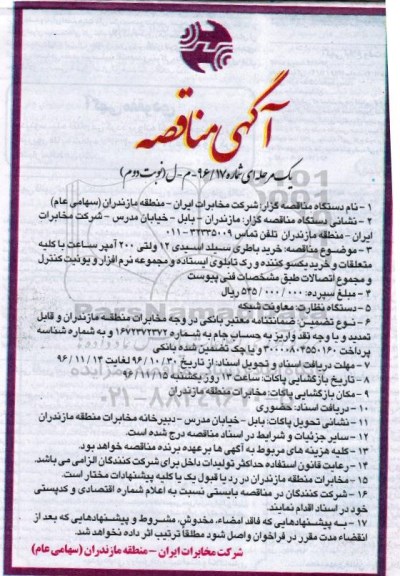 آگهی مناقصه
یک مرحله ای شماره ۹۶/۱۷-م-ل (نوبت دوم)
۱ - نام دستگاه مناقصه گزار: شرکت مخابرات ایران - منطقه مازندران (سهامی عام)
۲ - نشانی دستگاه مناقصه گزار: مازندران - بابل - خیابان مدرس - شرکت مخابرات
ایران - منطقه مازندران تلفن تماس ۳۲۳۳۵۰۰۹-۰۱۱
۳ - موضوع مناقصه: خرید باطری سیلد اسیدی ۱۲ ولتی ۲۰۰ آمپر ساعت با کلیه
متعلقات و خرید یکسو کننده و رک تابلوی ایستاده و مجموعه نرم افزار و یونیت کنترل
و مجموع اتصالات طبق مشخصات فنی پیوست
۴ - مبلغ سپرده: ۵۴۵/۰۰۰/۰۰۰ ریال
۵ - دستگاه نظارت: معاونت شبکه
۶ - نوع تضمین: ضمانتنامه معتبر بانکی در وجه مخابرات منطقه مازندران و قابل
تمدید و یا وجه نقد واریز به حساب جام به شماره ۱۶۷۲۳۷۲۳۷۲ و به شماره شناسه
پرداخت ۳۰۰۰۰۸۰۴۵۵۰۱۶۰ و یا چک تضمین شده بانکی
۷ - مهلت دریافت اسناد و تحویل اسناد: از تاریخ ۹۶/۱۰/۳۰ لغایت ۹۶/۱۱/۱۴
۸ - تاریخ بازگشایی پاکات: ساعت ۱۳ روز یکشنبه ۹۶/۱۱/۱۵
۹ - مکان بازگشایی پاکات: مخابرات منطقه مازندران
۱۰ - دریافت اسناد: حضوری
۱۱ - نشانی تحویل پاکات: بابل - خیابان مدرس - دبیرخانه مخابرات منطقه مازندران
۱۲ - سایر جزئیات و شرایط در اسناد مناقصه درج شده است.
۱۳ - کلیه هزینه های مربوط به آگهی ها بر عهده برنده مناقصه خواهد بود.
۱۴ - رعایت قانون استفاده حداکثر تولیدات داخل برای شرکت کنندگان الزامی می باشد.
۱۵ - مخابرات منطقه مازندران در رد یا قبول یک یا کلیه پیشنهادات مختار است.
۱۶ - شرکت کنندگان در مناقصه بایستی نسبت به اعلام شماره اقتصادی و کدپستی
خود در اسناد اقدام نمایند.
۱۷ - به پیشنهادهایی که فاقد امضاء، مخدوش، مشروط و پیشنهادهایی که بعد از
انقضاء مدت مقرر در فراخوان واصل شود مطلقا ترتیب اثر داده نخواهد شد.
شرکت مخابرات ایران - منطقه مازندران (سهامی عام)